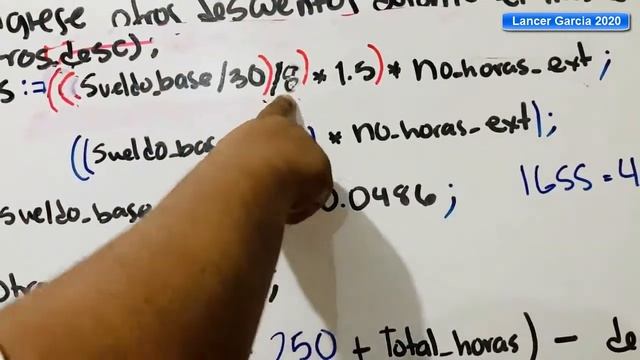 Lancer Garcia 2020
grese otros descuentos
ros_desc);
s := (((Sueldo_base/30)/8) * 1.5) * no_horas_ext;
((sueldo_bas ) * no_horas_ext);
sueldo_base 0.0486; IGSS = 4
otr ;
250 + Total_horas) - de